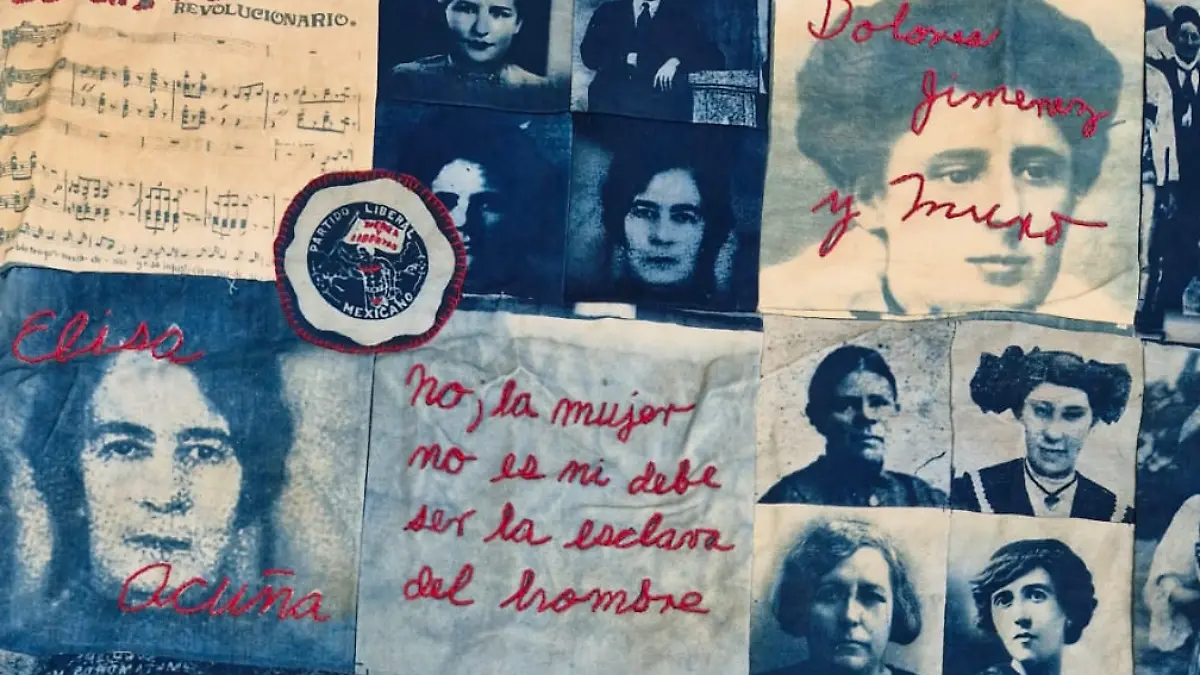 REVOLUCIONARIO.
Dolores
Jimenez
y Muro
PARTIDO LIBERAL
TIERRA
Y
LIBERTAD
MEXICANO
Elisa
Acuña
no, la mujer
no es ni debe
ser la esclava
del hombre